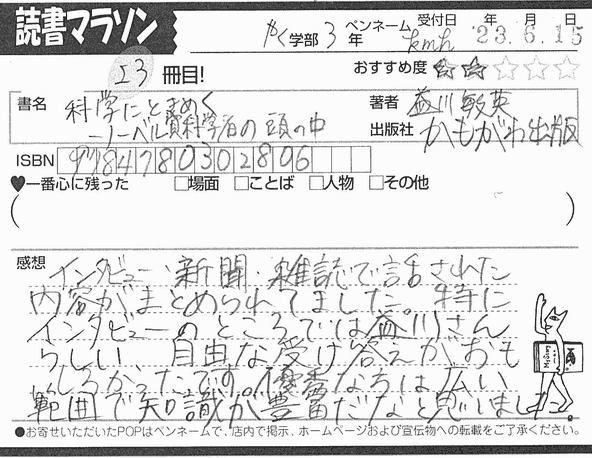 読書マラソン
やく学部 3 年
ペンネーム kmh
受付日 '23年6月15日
23 冊目!
おすすめ度 ★★☆☆☆
書名 科学にときめく
ーノーベル賞科学者の頭の中
著者 益川敏英
出版社 かもがわ出版
ISBN 9784780302806
♥一番心に残った □場面 □ことば □人物 □その他
( )
感想 インタビュー、新聞・雑誌で話された
内容がまとめられてました。特に
インタビューのところでは益川さん
らしい、自由な受け答えがおも
しろかったです。優秀な方は広い
範囲で知識が豊富だなと思いました。
●お寄せいただいたPOPはペンネームで、店内で掲示、ホームページおよび宣伝物への転載をご了承ください。